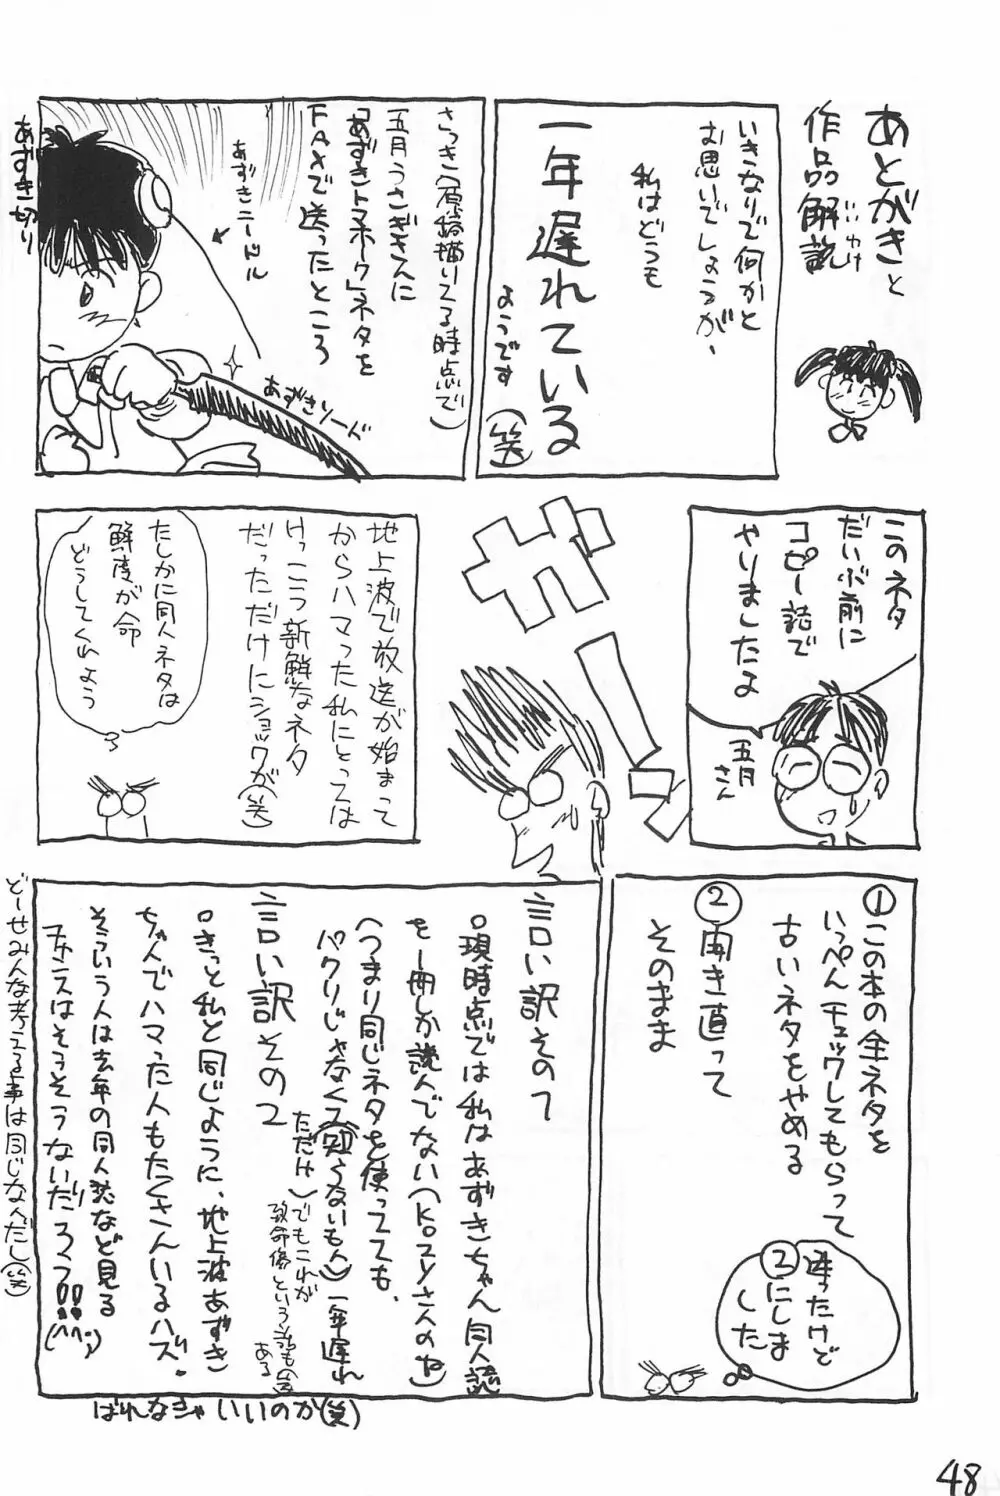 あとがきと
作品解説
いいわけ
いきなりで何かと
お思いでしょうが、
私はどうも
一年遅れている
ようです
(笑)
さっき(原稿描いてる時点で)
五月うさぎさんに
「あずきトマホーク」ネタを
FAXで送ったところ
あずきニードル
あずきソード
あずき切り
このネタ
だいぶ前に
コピー誌で
やりましたよ
五月さん
ガーン
地上波で放送が始まって
からハマった私にとっては
けっこう新鮮なネタ
だっただけにショックが(笑)
たしかに同人ネタは
鮮度が命
どうしてくれよう
①この本の全ネタを
いっぺんチェックしてもらって
古いネタをやめる
②開き直って
そのまま
迷ったけど
②にしま
した
言い訳その1
□現時点では私はあずきちゃん同人誌
を一冊しか読んでない(KOZYさんのね)
(つまり同じネタを使ってても、
パクリじゃなくて知らないもん)一年遅れ
(ただけ)でもこれが
致命傷という説も(笑)
ある
言い訳その2
□きっと私と同じように、地上波あずき
ちゃんでハマった人もたくさんいるハズ。
そういう人は去年の同人誌など見る
チャンスはそうそうないだろう!!(^^;)
どーせみんな考える事は同じなんだし(笑)
ばれなきゃいいのか(笑)
48